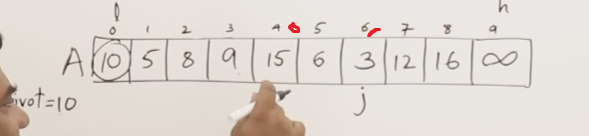 l h
0 1 2 3 4 5 6 7 8 9
A 10 5 8 9 15 6 3 12 16 ∞
ivot=10 j